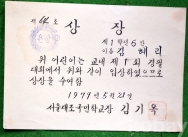 제 64 호
상 장
제 1 학년 6 반
이름 김 혜 린
위 어린이는 교내 제 1 회 경필
대회에서 위와 같이 입상하였으므로
상장을 수여함
1979 년 5 월 21 일
서울 국민학교장 김 기 옥